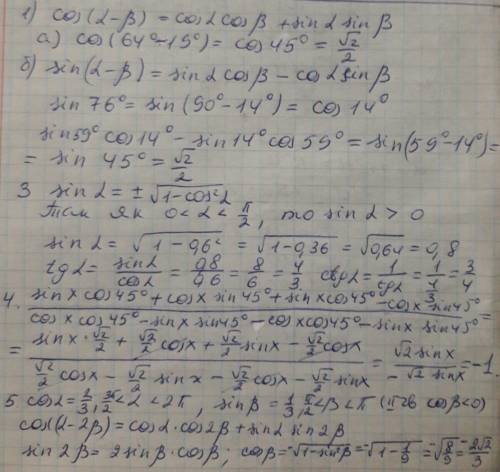 1) cos(α-β) = cosα cosβ + sinα sinβ
а) cos(64°-19°) = cos 45° = √2/2
б) sin(α-β) = sinα cosβ - cosα sinβ
sin 76° = sin(90°-14°) = cos 14°
sin59° cos14° - sin14° cos59° = sin(59°-14°) =
= sin 45° = √2/2
3 sinα = ±√(1-cos²α)
Там як 0<α<π/2, то sinα > 0
sinα = √(1-0,6²) = √(1-0,36) = √0,64 = 0,8
tgα = sinα/cosα = 0,8/0,6 = 8/6 = 4/3 ctgα = 1/tgα = 1/(4/3) = 3/4
4. (sinx cos45° + cosx sin45° + sinx cos45° - cosx sin45°)/(cosx cos45° - sinx sin45° - cosx cos45° - sinx sin45°) =
= (sinx·√2/2 + √2/2 cosx + √2/2 sinx - √2/2 cosx)/(√2/2 cosx - √2/2 sinx - √2/2 cosx - √2/2 sinx) = √2 sinx/(-√2 sinx) = -1.
5. cosα = 2/3, 3π/2<α<2π, sinβ = 1/3, π/2<β<π (cosβ<0)
cos(α-2β) = cosα·cos2β + sinα sin2β
sin2β = 2sinβ·cosβ; cosβ = -√(1-sin²β) = -√(1-1/9) = -√(8/9) = -2√2/3